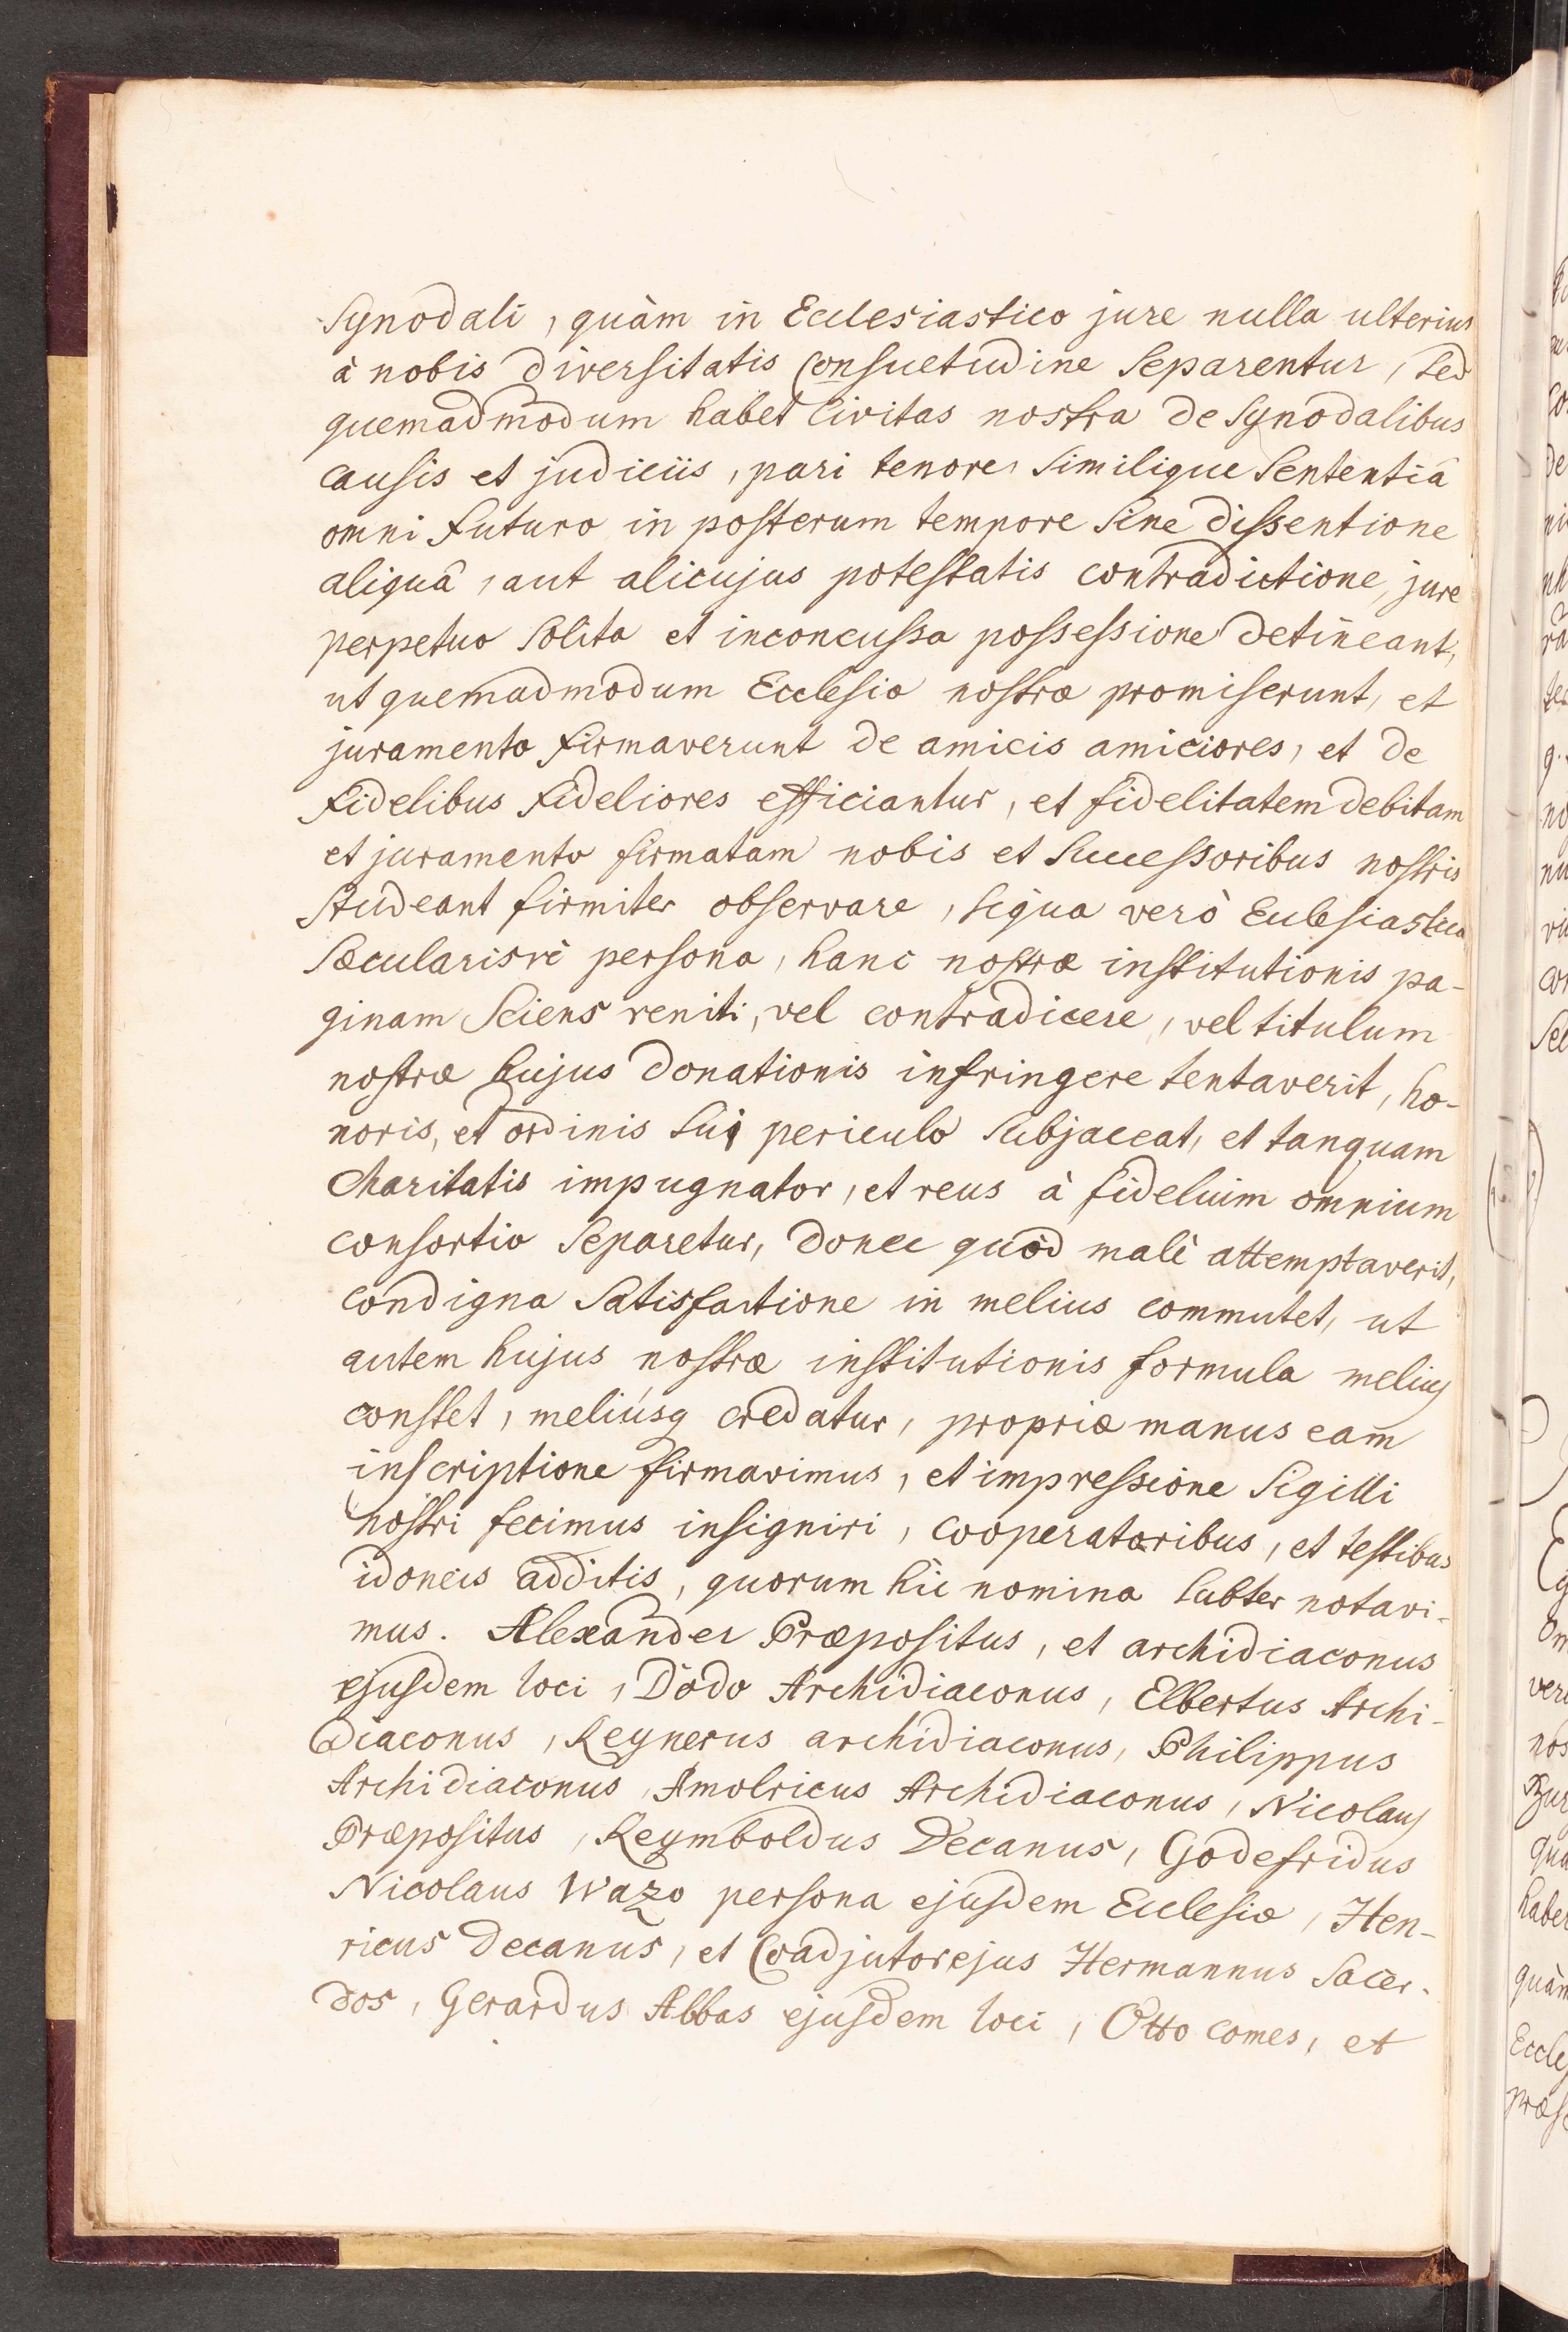 Synodali, quàm in Ecclesiastico jure nulla ulterius
à nobis diversitatis Consuetudine Separentur, Sed
quemadmodum habet Civitas nostra de Synodalibus
causis et judiciis, pari tenore, Similique Sententiâ
omni Futuro in posterum tempore Sine dissentione
aliquâ, aut alicujus potestatis contradictione, jure
perpetuo Solita et inconcussa possessione detineant,
ut quemadmodum Ecclesiæ nostræ promiserunt, et
juramento Firmaverunt de amicis amiciores, et de
Fidelibus Fideliores efficiantur, et fidelitatem debitam
et juramento firmatam nobis et Successoribus nostris
Studeant firmiter observare, Siqua verò Ecclesiastica
Sæcularisvè persona, hanc nostræ institutionis pa-
ginam Sciens reniti, vel contradicere, vel titulum
nostræ hujus donationis infringere tentaverit, ho-
noris, et ordinis Sui periculo Subjaceat, et tanquam
Charitatis impugnator, et reus à fidelium omnium
consortio Separetur, donec quòd malè attemptaverit,
condigna Satisfactione in melius commutet, ut
autem hujus nostræ institutionis formula melius
constet, meliúsq credatur, propriæ manus eam
inscriptione firmavimus, et impressione Sigilli
nostri fecimus insigniri, cooperatoribus, et testibus
idoneis additis, quorum hìc nomina Subter notavi-
mus. Alexander Præpositus, et archidiaconus
ejusdem loci, Dodo Archidiaconus, Elbertus Archi-
diaconus, Reynerus archidiaconus, Philippus
Archidiaconus, Amolricus Archidiaconus, Nicolaus
Præpositus, Reymboldus Decanus, Godefridus
Nicolaus Wazo persona ejusdem Ecclesiæ, Hen-
ricus Decanus, et Coadjutor ejus Hermannus Sacer-
dos, Gerardus Abbas ejusdem loci, Otto comes, et